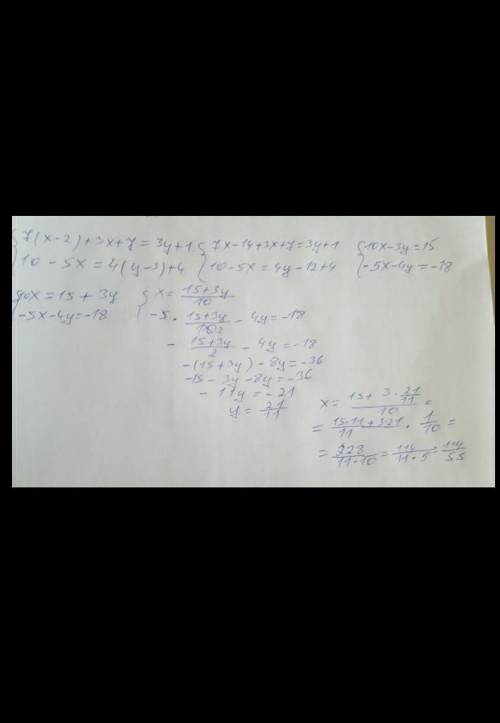 { 7(x-2)+3x+7=3y+1 { 7x-14+3x+7=3y+1 { 10x-3y=15
10-5x=4(y-3)+4 10-5x=4y-12+4 -5x-4y=-18
10x=15+3y { x=\frac{15+3y}{10}
-5x-4y=-18 -5·\frac{15+3y}{10_2}-4y=-18
-\frac{15+3y}{2}-4y=-18
-(15+3y)-8y=-36
-15-3y-8y=-36
-11y=-21
y=\frac{21}{11}
x=\frac{15+3·\frac{21}{11}}{10}=
=\frac{15·11+3·21}{11}·\frac{1}{10}=
=\frac{228}{11·10}=\frac{114}{11·5}=\frac{114}{55}